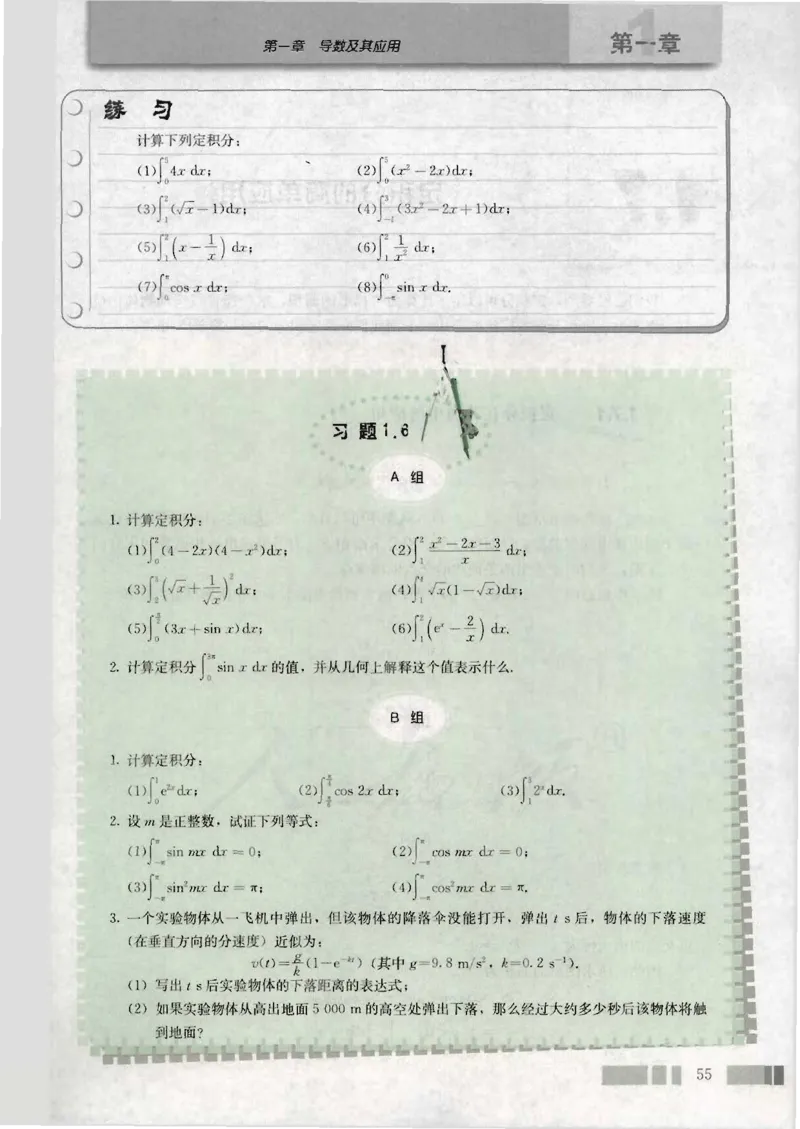 第一章 导数及其应用
第一章
练 习
计算下列定积分：
(1)∫_0^5 4x dx； (2)∫_0^5 (x²－2x)dx；
(3)∫_1^2 (√x－1)dx； (4)∫_{-1}^3 (3x²－2x＋1)dx；
(5)∫_1^2 (x－1/x) dx； (6)∫_1^2 1/x² dx；
(7)∫_0^π cos x dx； (8)∫_{-π}^0 sin x dx.
习 题1.6
A 组
1. 计算定积分：
(1)∫_0^2 (4－2x)(4－x²)dx； (2)∫_1^2 (x²－2x－3)/x dx；
(3)∫_2^3 (√x＋1/√x)² dx； (4)∫_1^4 √x(1－√x)dx；
(5)∫_0 (3x＋sin x)dx； (6)∫_1^2 (e^x－2/x) dx.
2. 计算定积分∫_0^{3π} sin x dx 的值，并从几何上解释这个值表示什么.
B 组
1. 计算定积分：
(1)∫_0^1 e^{2x}dx； (2)∫ cos 2x dx； (3)∫_1^3 2^x dx.
2. 设 m 是正整数，试证下列等式：
(1)∫_{-π}^π sin mx dx＝0； (2)∫_{-π}^π cos mx dx＝0；
(3)∫_{-π}^π sin²mx dx＝π； (4)∫_{-π}^π cos²mx dx＝π.
3. 一个实验物体从一飞机中弹出，但该物体的降落伞没能打开，弹出 t s 后，物体的下落速度
(在垂直方向的分速度) 近似为：
v(t)＝g/k(1－e^{－kt}) (其中 g＝9.8 m/s²，k＝0.2 s⁻¹).
(1) 写出 t s后实验物体的下落距离的表达式；
(2) 如果实验物体从高出地面 5 000 m 的高空处弹出下落，那么经过大约多少秒后该物体将触
到地面?
55